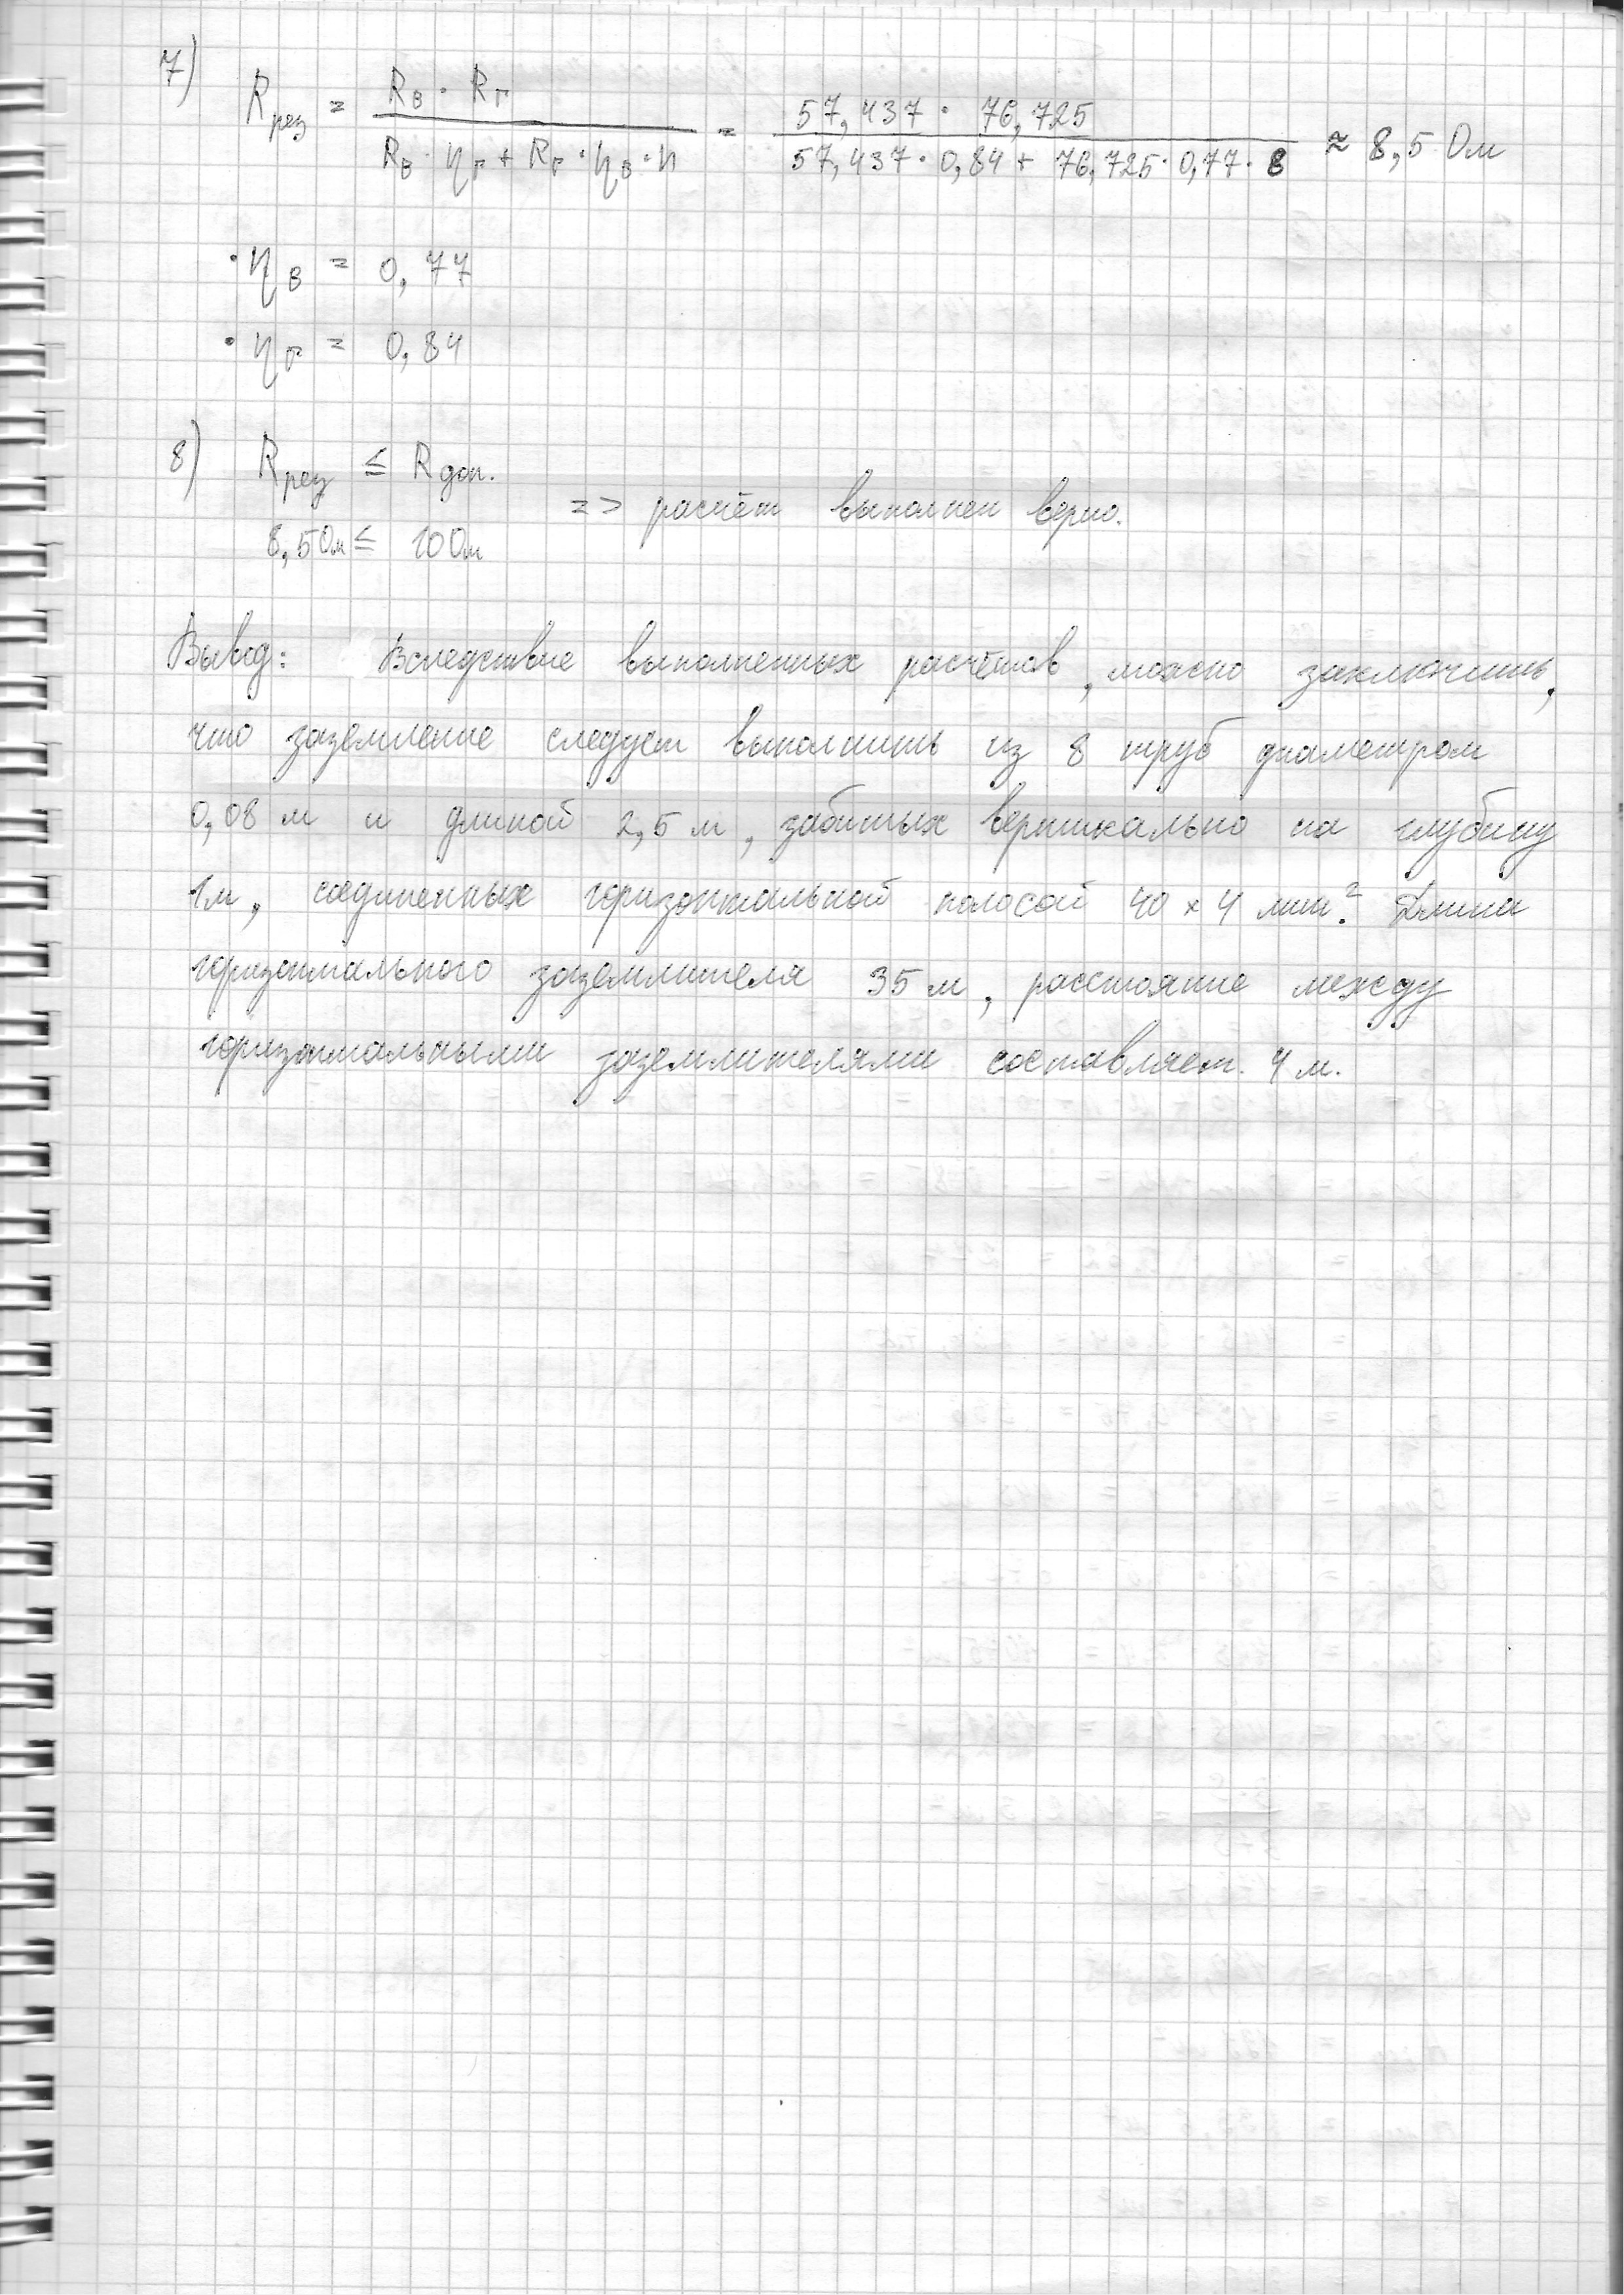 7)
Rрез = Rв · Rг / Rв · ηг + Rг · ηв · n = 57,437 · 76,725 / 57,437 · 0,84 + 76,725 · 0,77 · 8 ≈ 8,5 Ом
· ηв = 0,77
· ηг = 0,84
8) Rрез ≤ Rдоп.
=> расчёт выполнен верно.
8,5 Ом ≤ 10 Ом
Вывод: Вследствие выполненных расчётов, можно заключить,
что заземление следует выполнить из 8 труб диаметром
0,08 м и длиной 2,5 м, забитых вертикально на глубину
1м, соединенных горизонтальной полосой 40 × 4 мм². Длина
горизонтального заземлителя 35 м, расстояние между
горизонтальными заземлителями составляет. 4 м.